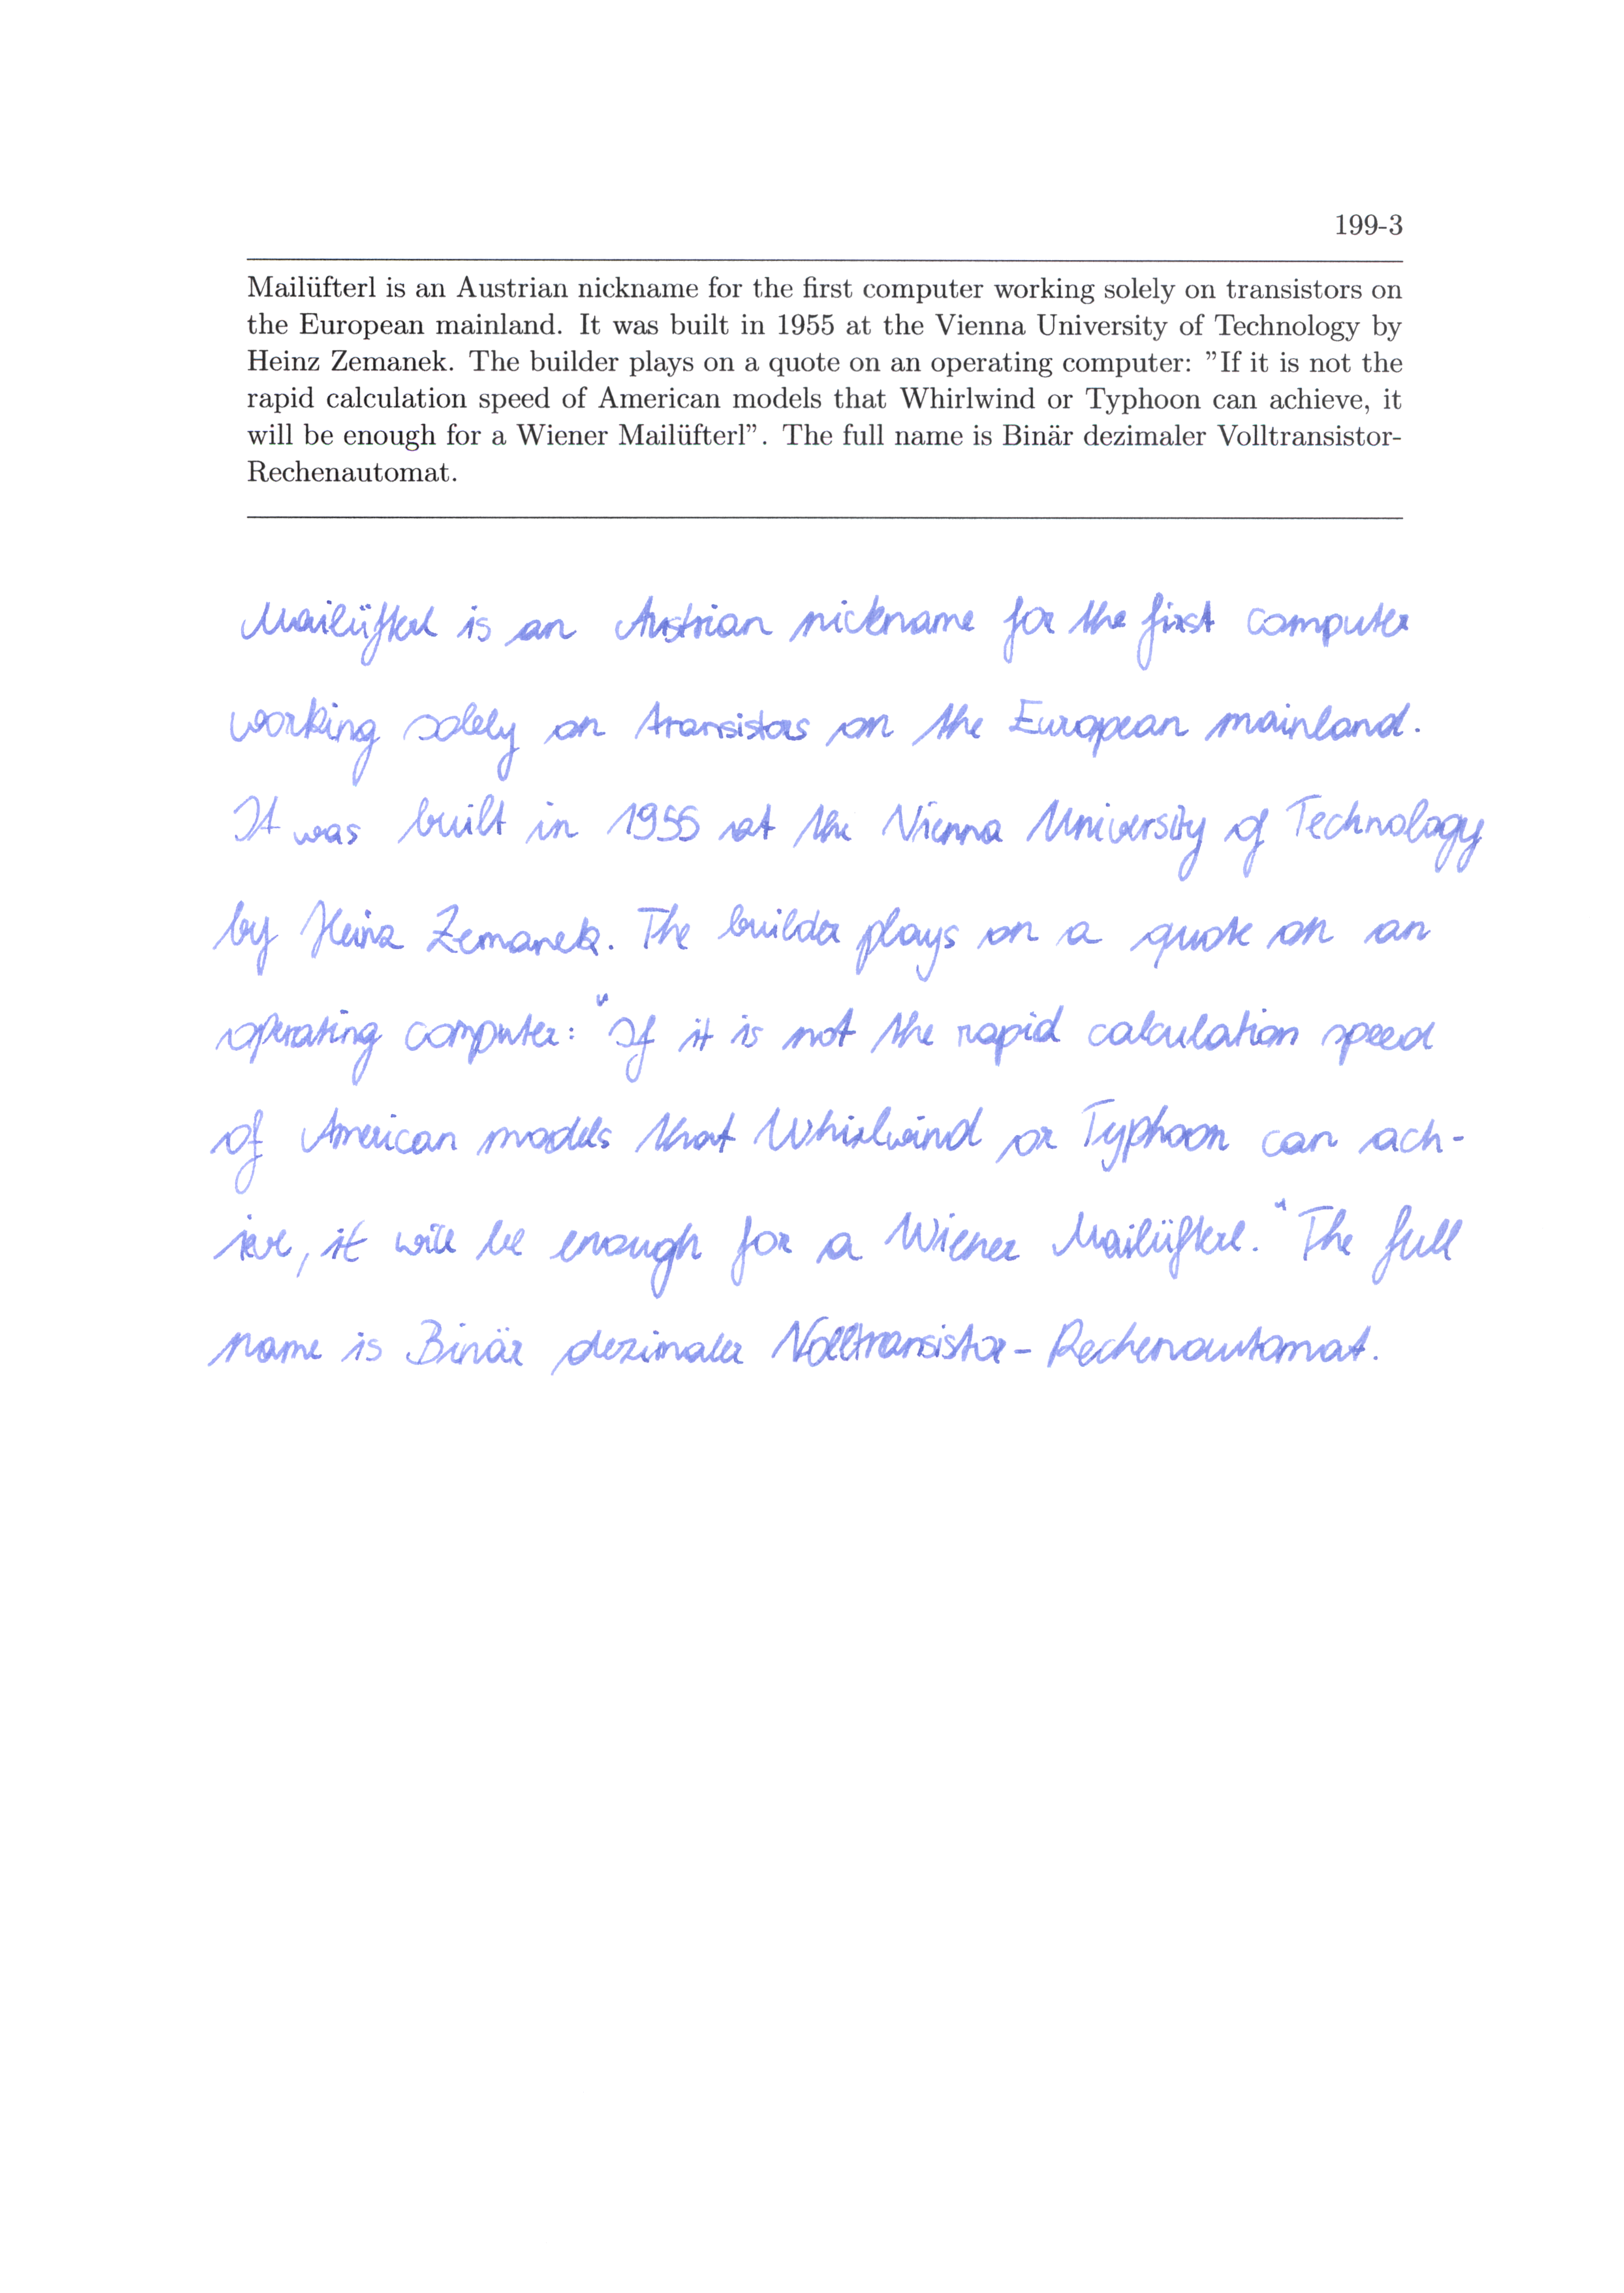 199-3
Mailüfterl is an Austrian nickname for the first computer working solely on transistors on
the European mainland. It was built in 1955 at the Vienna University of Technology by
Heinz Zemanek. The builder plays on a quote on an operating computer: ”If it is not the
rapid calculation speed of American models that Whirlwind or Typhoon can achieve, it
will be enough for a Wiener Mailüfterl”. The full name is Binär dezimaler Volltransistor-
Rechenautomat.
Mailüfterl is an Austrian nickname for the first computer
working solely on transistors on the European mainland.
It was built in 1955 at the Vienna University of Technology
by Heinz Zemanek. The builder plays on a quote on an
operating computer: "If it is not the rapid calculation speed
of American models that Whirlwind or Typhoon can ach-
ieve, it will be enough for a Wiener Mailüfterl." The full
name is Binär dezimaler Volltransistor-Rechenautomat.